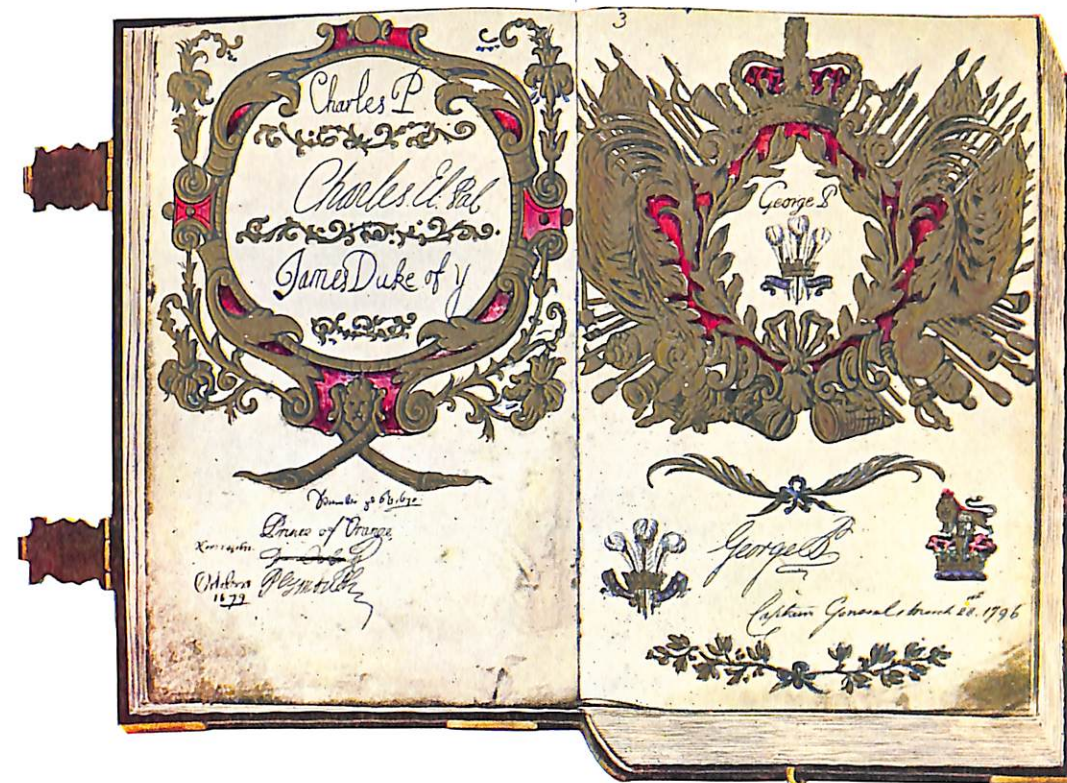 Charles P
Charles El. Pal
James Duke of y
ye 6th 1670
Prince of Orange
October Plymouth
1679
3
George P
George P
Captain General March 20. 1796